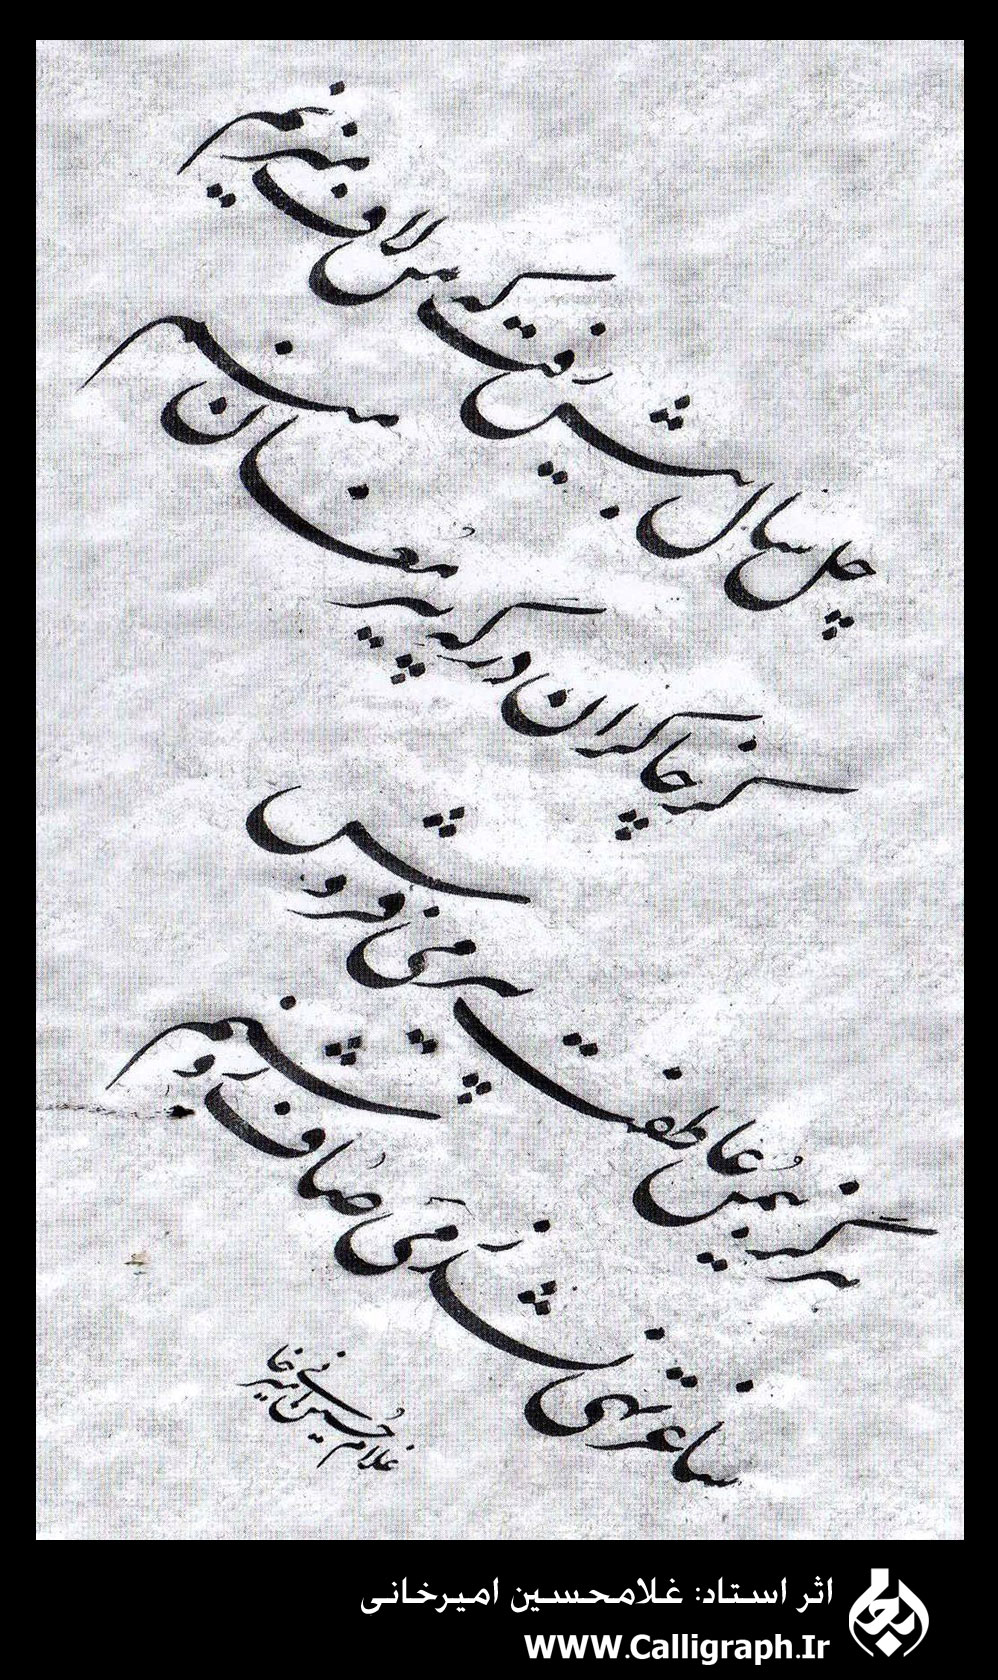 چل سال بیش رفت که من لاف میزنم
کز چاکران درگه پیر مُغان منم
هرگز بیُمن عاطفت پیر می فروش
ساغر تهی نشد ز می صاف روشنم
غلامحسین امیرخانی
اثر استاد: غلامحسین امیرخانی
WWW.Calligraph.Ir